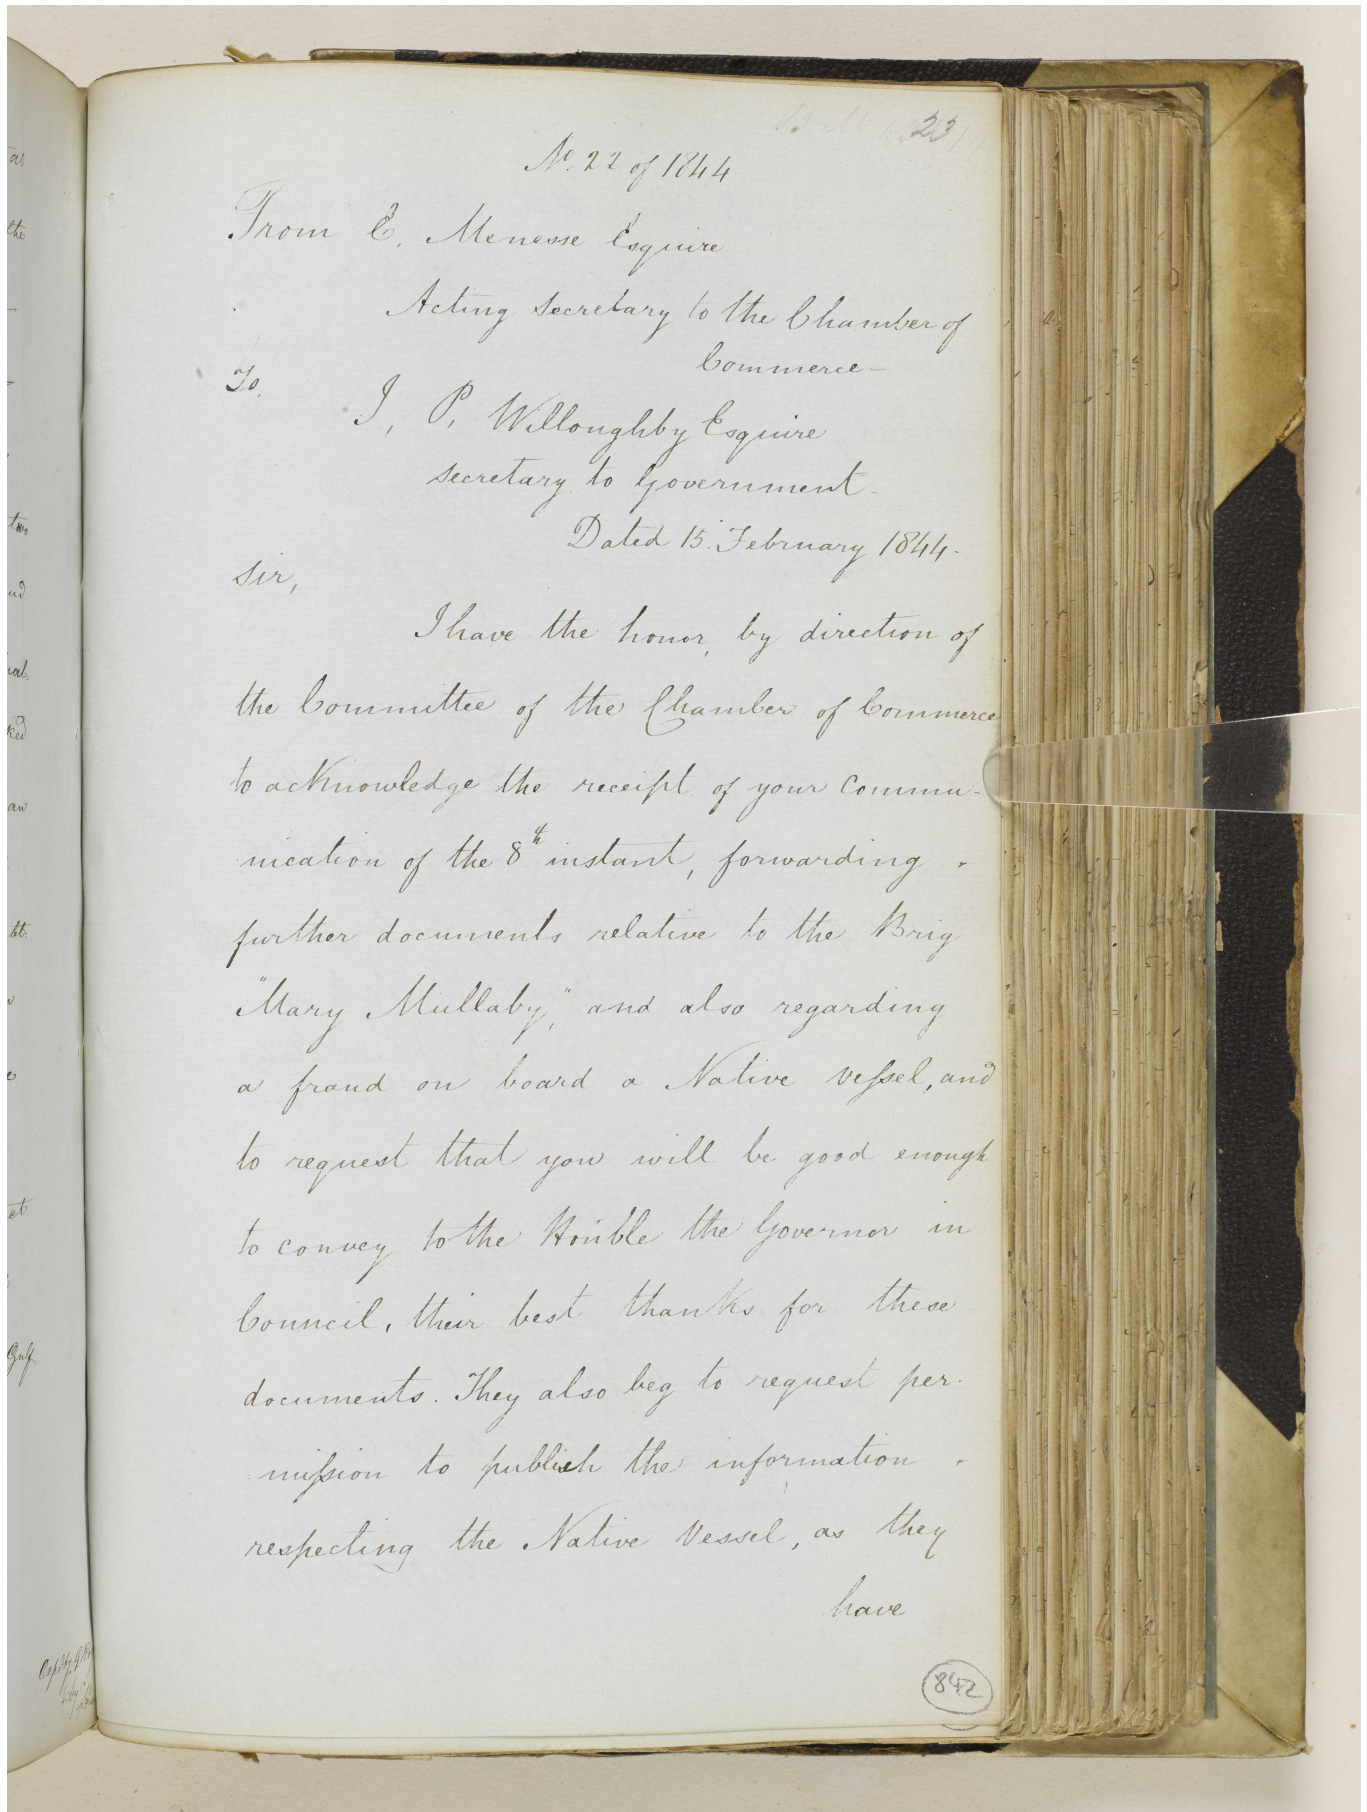 23
No. 22 of 1844
From E. Menesse Esquire
Acting Secretary to the Chamber of
Commerce-
To,
J, P, Willoughby Esquire
Secretary to Government-
Dated 15. February 1844-
Sir,
I have the honor, by direction of
the Committee of the Chamber of Commerce
to acknowledge the receipt of your Commu-
nication of the 8th instant, forwarding
further documents relative to the Brig
"Mary Mullaby," and also regarding
a fraud on board a Native vessel, and
to request that you will be good enough
to convey to the Hon'ble the Governor in
Council, their best thanks for these
documents. They also beg to request per-
mission to publish the information
respecting the Native Vessel, as they
have
842